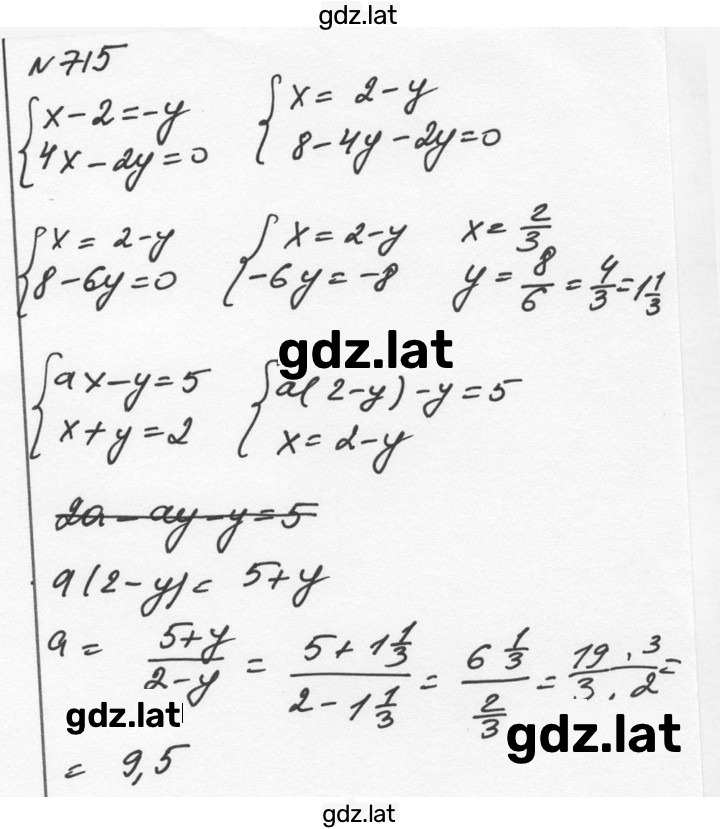 gdz.lat
N 715
{ x - 2 = -y    { x = 2 - y
{ 4x - 2y = 0    { 8 - 4y - 2y = 0
{ x = 2 - y    { x = 2 - y    x = 2/3
{ 8 - 6y = 0    { -6y = -8    y = 8/6 = 4/3 = 1 1/3
gdz.lat
{ ax - y = 5    { a(2 - y) - y = 5
{ x + y = 2    { x = 2 - y
2a - ay - y = 5
a(2 - y) = 5 + y
a = (5 + y)/(2 - y) = (5 + 1 1/3)/(2 - 1 1/3) = (6 1/3)/(2/3) = (19 · 3)/(3 · 2) =
gdz.lat
gdz.lat
= 9,5
gdz.lat